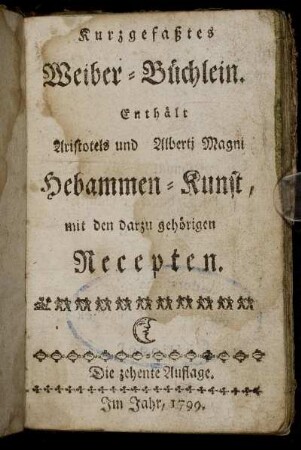 Kurzgefaßtes
Weiber-Büchlein.
Enthält
Aristotels und Alberti Magni
Hebammen-Kunst,
mit den darzu gehörigen
Recepten.
Die zehente Auflage.
Im Jahr, 1799.